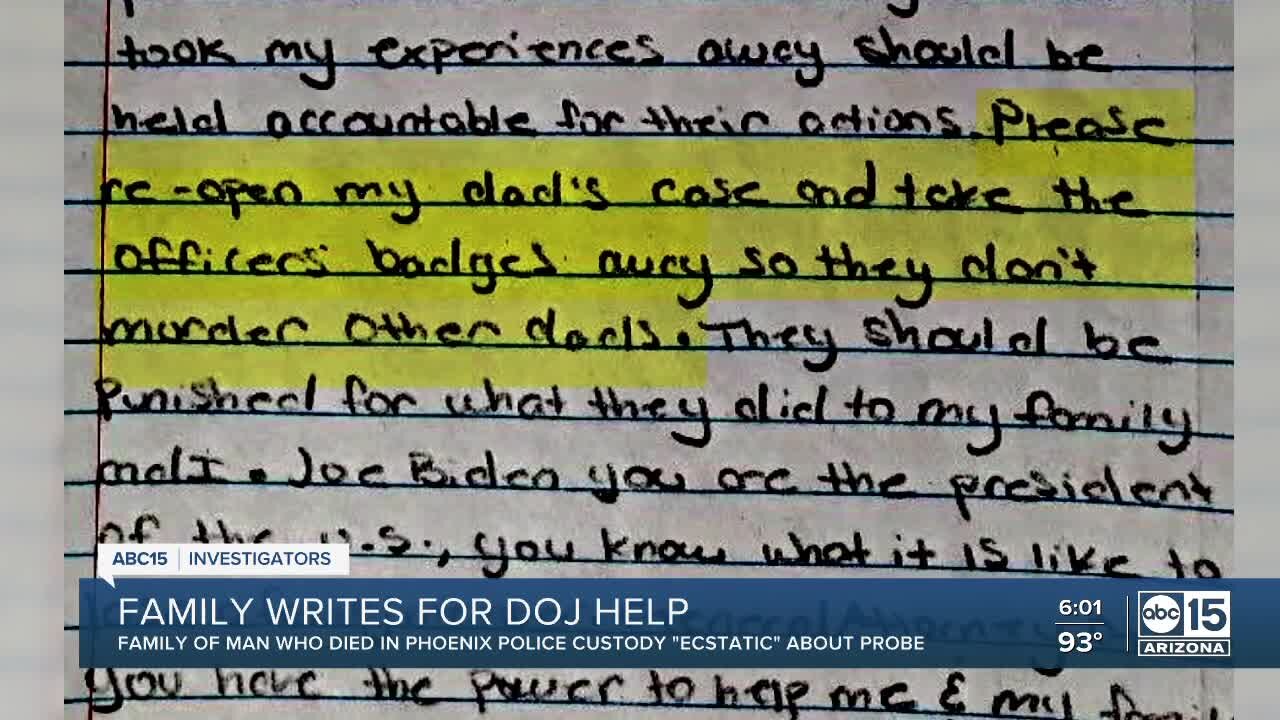 took my experiences away should be
held accountable for their actions. Please
re-open my dad's case and take the
officers' badges away so they don't
murder other dads. They should be
punished for what they did to my family
and I. Joe Biden you are the president
of the U.S., you know what it is like to
ABC15 | INVESTIGATORS
FAMILY WRITES FOR DOJ HELP
FAMILY OF MAN WHO DIED IN PHOENIX POLICE CUSTODY "ECSTATIC" ABOUT PROBE
6:01
93°
abc 15
ARIZONA
You have the power to help me & my